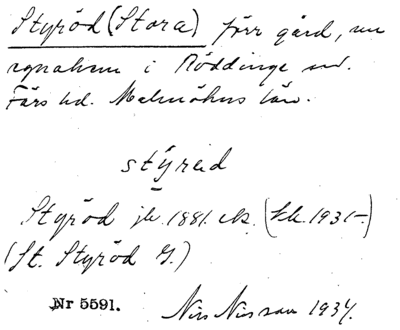 Styröd (Stora) förr gård, nu
egnahem i Röddinge sn.
Färs hd. Malmöhus län.
stýred
Styröd jb. 1881. ek. (hk. 1931-)
(St. Styröd G.)
Nr 5591. Nils Nilsson 1934.